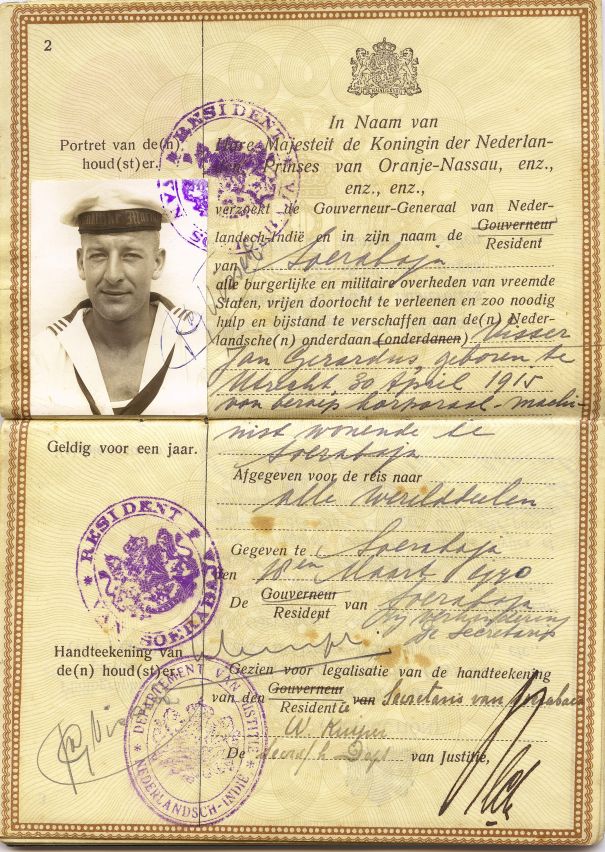 2
Portret van de(n)
houd(st)er.
In Naam van
Hare Majesteit de Koningin der Nederlan-
den, Prinses van Oranje-Nassau, enz.,
enz., enz.,
verzoekt de Gouverneur-Generaal van Neder-
landsch-Indië en in zijn naam de Gouverneur
Resident
van Soerabaja
alle burgerlijke en militaire overheden van vreemde
Staten, vrijen doortocht te verleenen en zoo noodig
hulp en bijstand te verschaffen aan de(n) Neder-
landsche(n) onderdaan (onderdanen) Visser
Jan Gerardus geboren te
Utrecht 30 April 1915
van beroep korporaal-machi-
nist wonende te
Soerabaja
Geldig voor een jaar.
Afgegeven voor de reis naar
alle werelddeelen
Gegeven te Soerabaja
den 18en Maart 1940
De Gouverneur
Resident van Soerabaja
bij verhindering
de Secretaris
Handteekening van
de(n) houd(st)er.
Gezien voor legalisatie van de handteekening
van den Gouverneur
Residentie van Secretaris van Soerabaja
W. Kuiper
De Dept van Justitie,
RESIDENT VAN SOERABAJA
RESIDENT VAN SOERABAJA
DEPARTEMENT VAN JUSTITIE
NEDERLANDSCH-INDIË